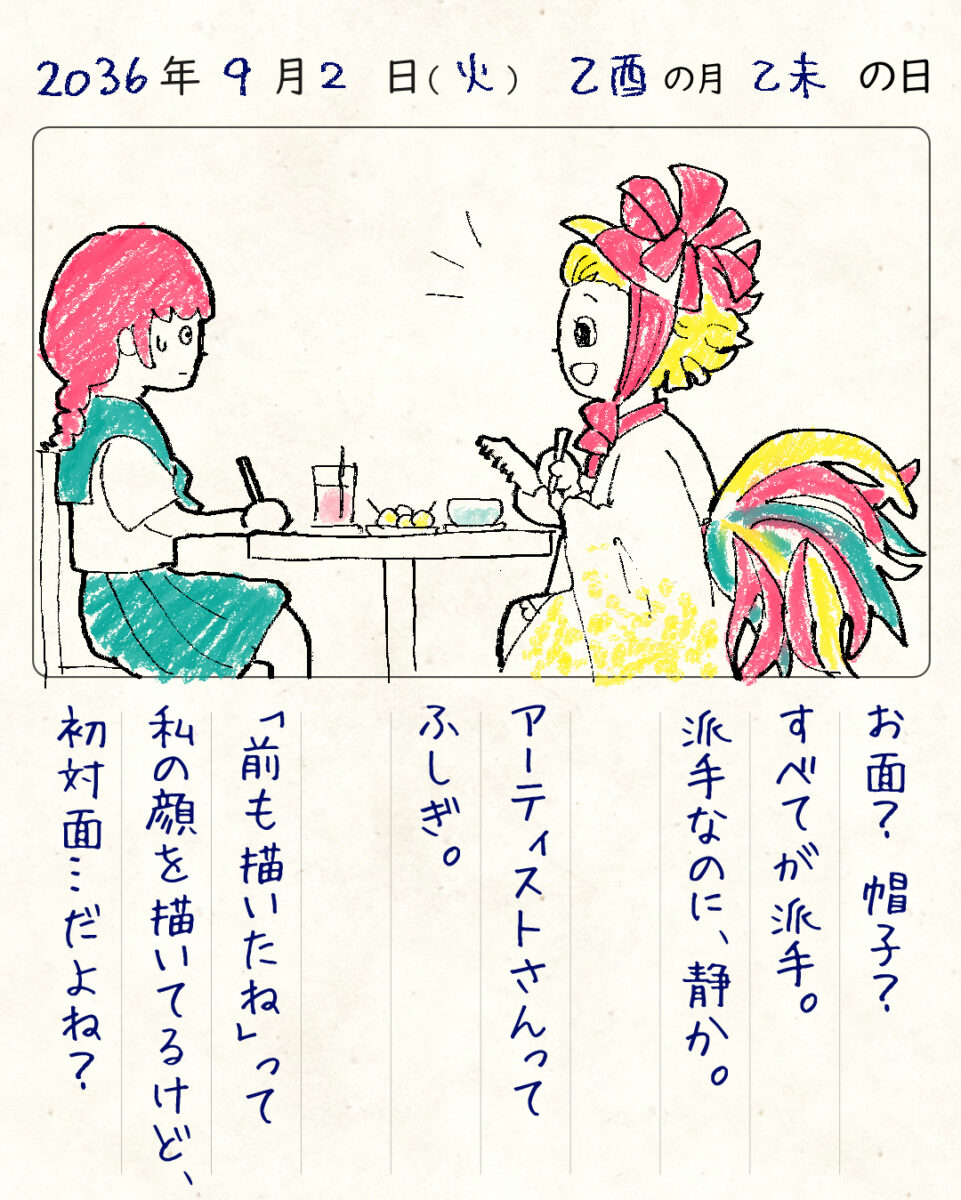 2036年9月2日(火) 乙酉の月 乙未の日
お面？ 帽子？
すべてが派手。
派手なのに、静か。
アーティストさんって
ふしぎ。
「前も描いたね」って
私の顔を描いてるけど、
初対面…だよね？